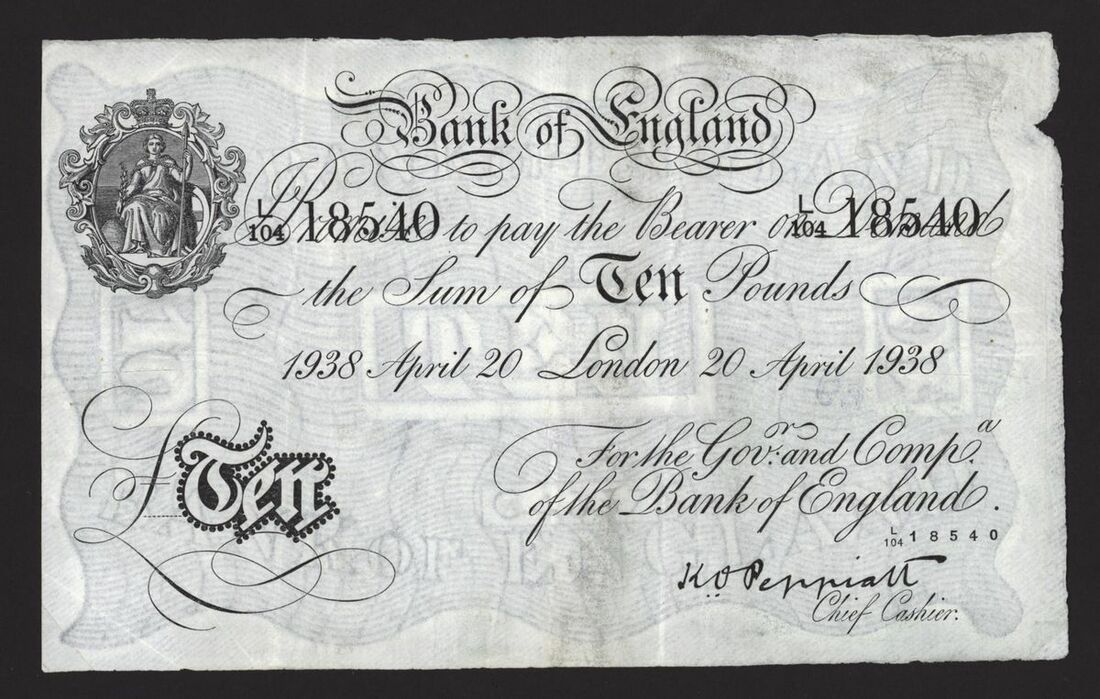 Bank of England
L/104 18540 L/104 18540
I Promise to pay the Bearer on Demand
the Sum of Ten Pounds
1938 April 20 London 20 April 1938
For the Govr. and Compa.
of the Bank of England.
L/104 18540
£Ten
K.O. Peppiatt
Chief Cashier.